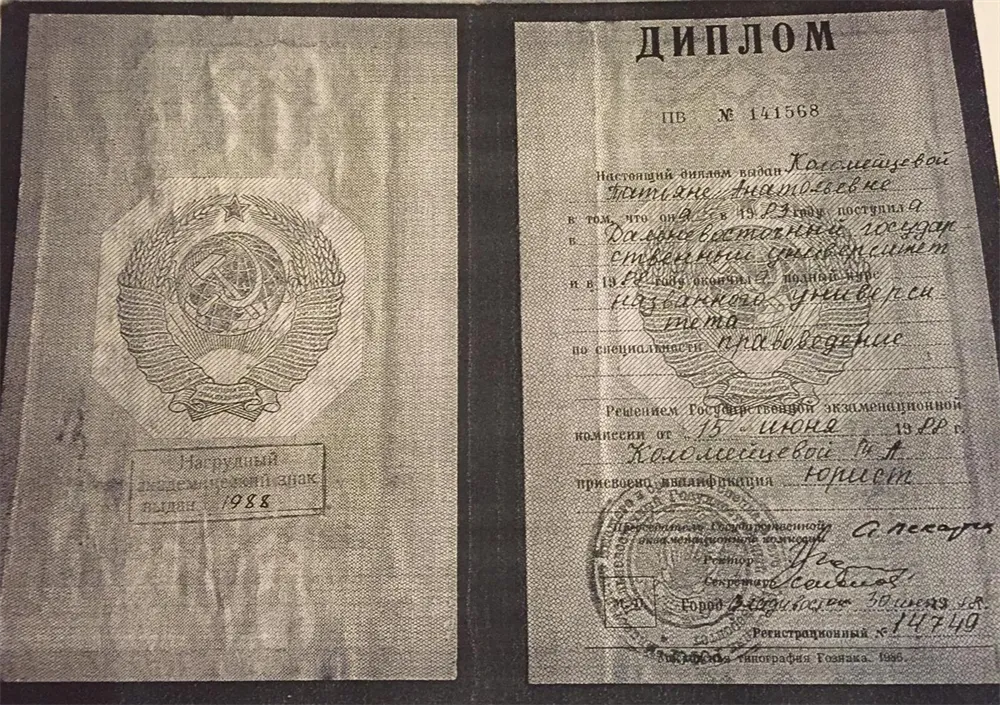 Нагрудный
академический знак
выдан 1988
ДИПЛОМ
ПВ № 141568
Настоящий диплом выдан Коломейцевой
Татьяне Анатольевне
в том, что она в 1983 году поступила
в Дальневосточный государ
ственный университет
и в 1988 году окончила полный курс
названного универси
тета
по специальности правоведение
Решением Государственной экзаменационной
комиссии от „15" июня 1988 г.
Коломейцевой Т. А.
присвоена квалификация юрист
Председатель Государственной
экзаменационной комиссии
Ректор
Секретарь
М.П. Город Владивосток 30 июня 1988.
Регистрационный № 14749
типография Гознака. 1986.